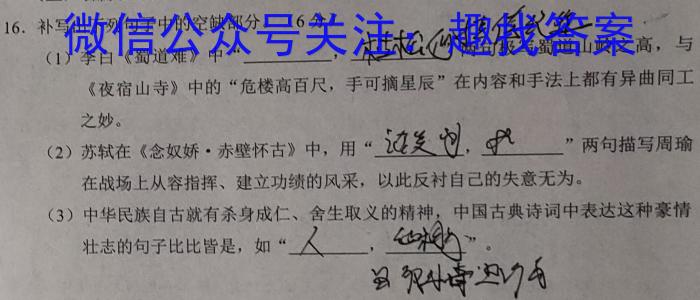 16. 补写出下列句子中的空缺部分。（6分）
微信公众号关注：趣找答案
（1）李白《蜀道难》中“ ， ”两句极写蜀道山峰之高，与
《夜宿山寺》中的“危楼高百尺，手可摘星辰”在内容和手法上都有异曲同工
之妙。
（2）苏轼在《念奴娇·赤壁怀古》中，用“ ， ”两句描写周瑜
在战场上从容指挥、建立功绩的风采，以此反衬自己的失意无为。
（3）中华民族自古就有杀身成仁、舍生取义的精神，中国古典诗词中表达这种豪情
壮志的句子比比皆是，如“人 ， ”。